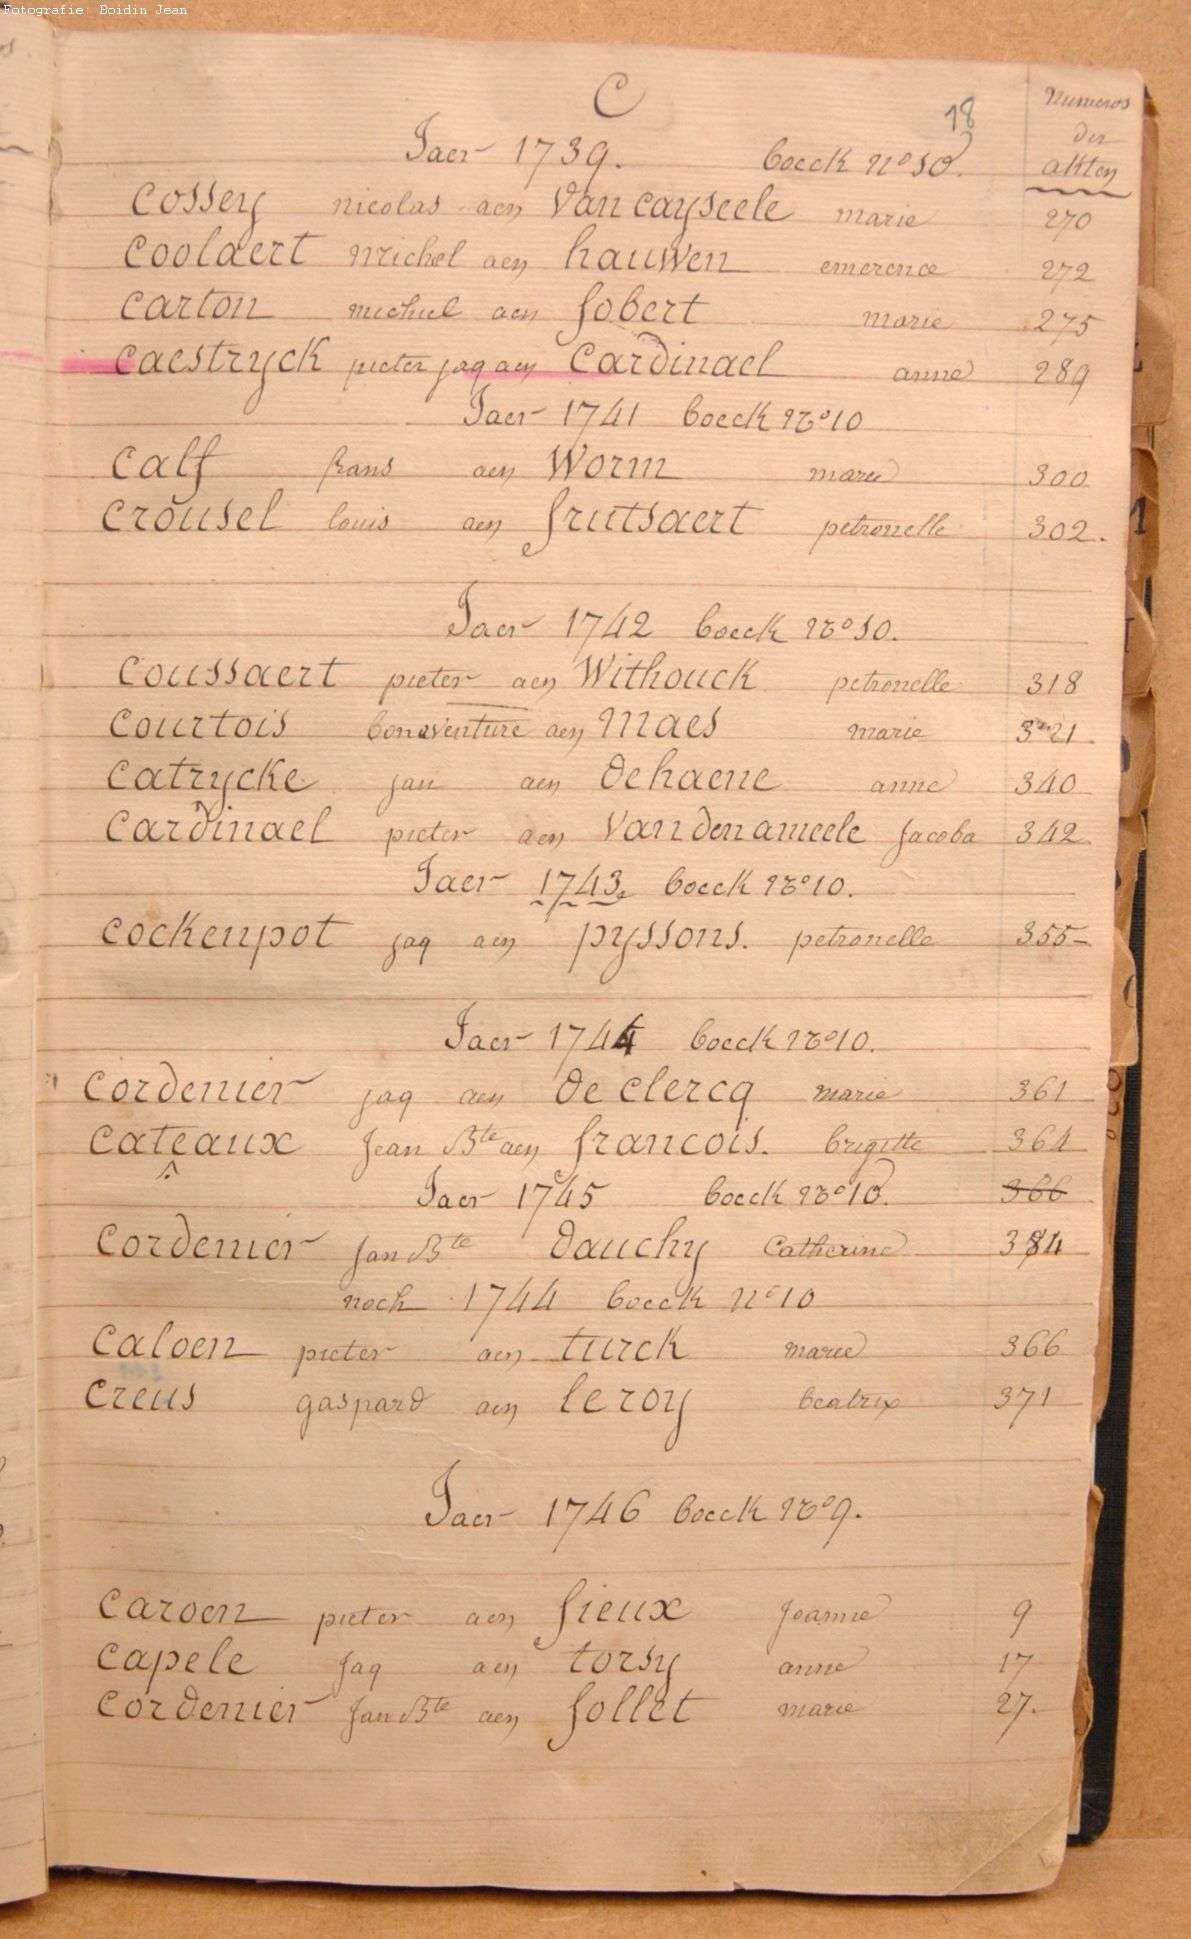 Fotografie: Boidin Jean
C
18
Numeros
der
akten
Jaer 1739. boeck n° 10.
Cossey nicolas aen Van cayseele marie 270
Coolaert michel aen hauwen emerence 272
Carton michiel aen fobert marie 275
Caestryck pieter jaq aen Cardinael anne 289
Jaer 1741 boeck n° 10
Calf frans aen Worm marie 300
Crousel louis aen frutsaert petronelle 302.
Jaer 1742 boeck n° 10.
Coussaert pieter aen Withouck petronelle 318
Courtois bonaventure aen Maes marie 321.
Catrycke jan aen dehaene anne 340
Cardinael pieter aen Vandenameele Jacoba 342
Jaer 1743 boeck n° 10.
Cockenpot jaq aen pyssons. petronelle 355
Jaer 1744 boeck n° 10.
Cordenier jaq aen de clercq marie 361
Cateaux Jean Bte aen francois. brigitte 364
Jaer 1745 boeck n° 10. 366
Cordenier Jan Bte dauchy Catherine 384
noch 1744 boeck n° 10
Caloen pieter aen turck marie 366
Creus gaspard aen le roy beatrix 371
Jaer 1746 boeck n° 9.
Caroen pieter aen fieux Jeanne 9
Capele Jaq aen torsy anne 17
Cordenier Jan Bte aen follet marie 27.